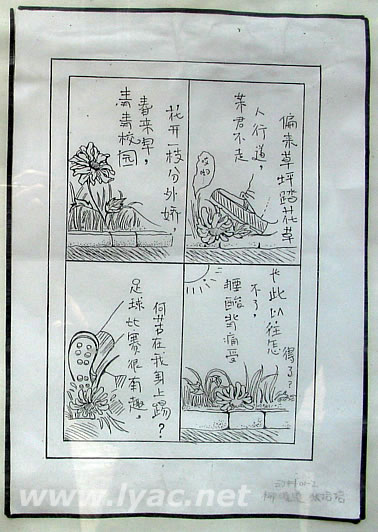 青青校园
春来早，
花开一枝分外娇，
某君不走
人行道，
偏来草坪踏花草
哎哟
足球比赛很有趣，
何苦在我身上踢？
腰酸背痛受
不了，
长此以往怎
得了？
www.lyac.net